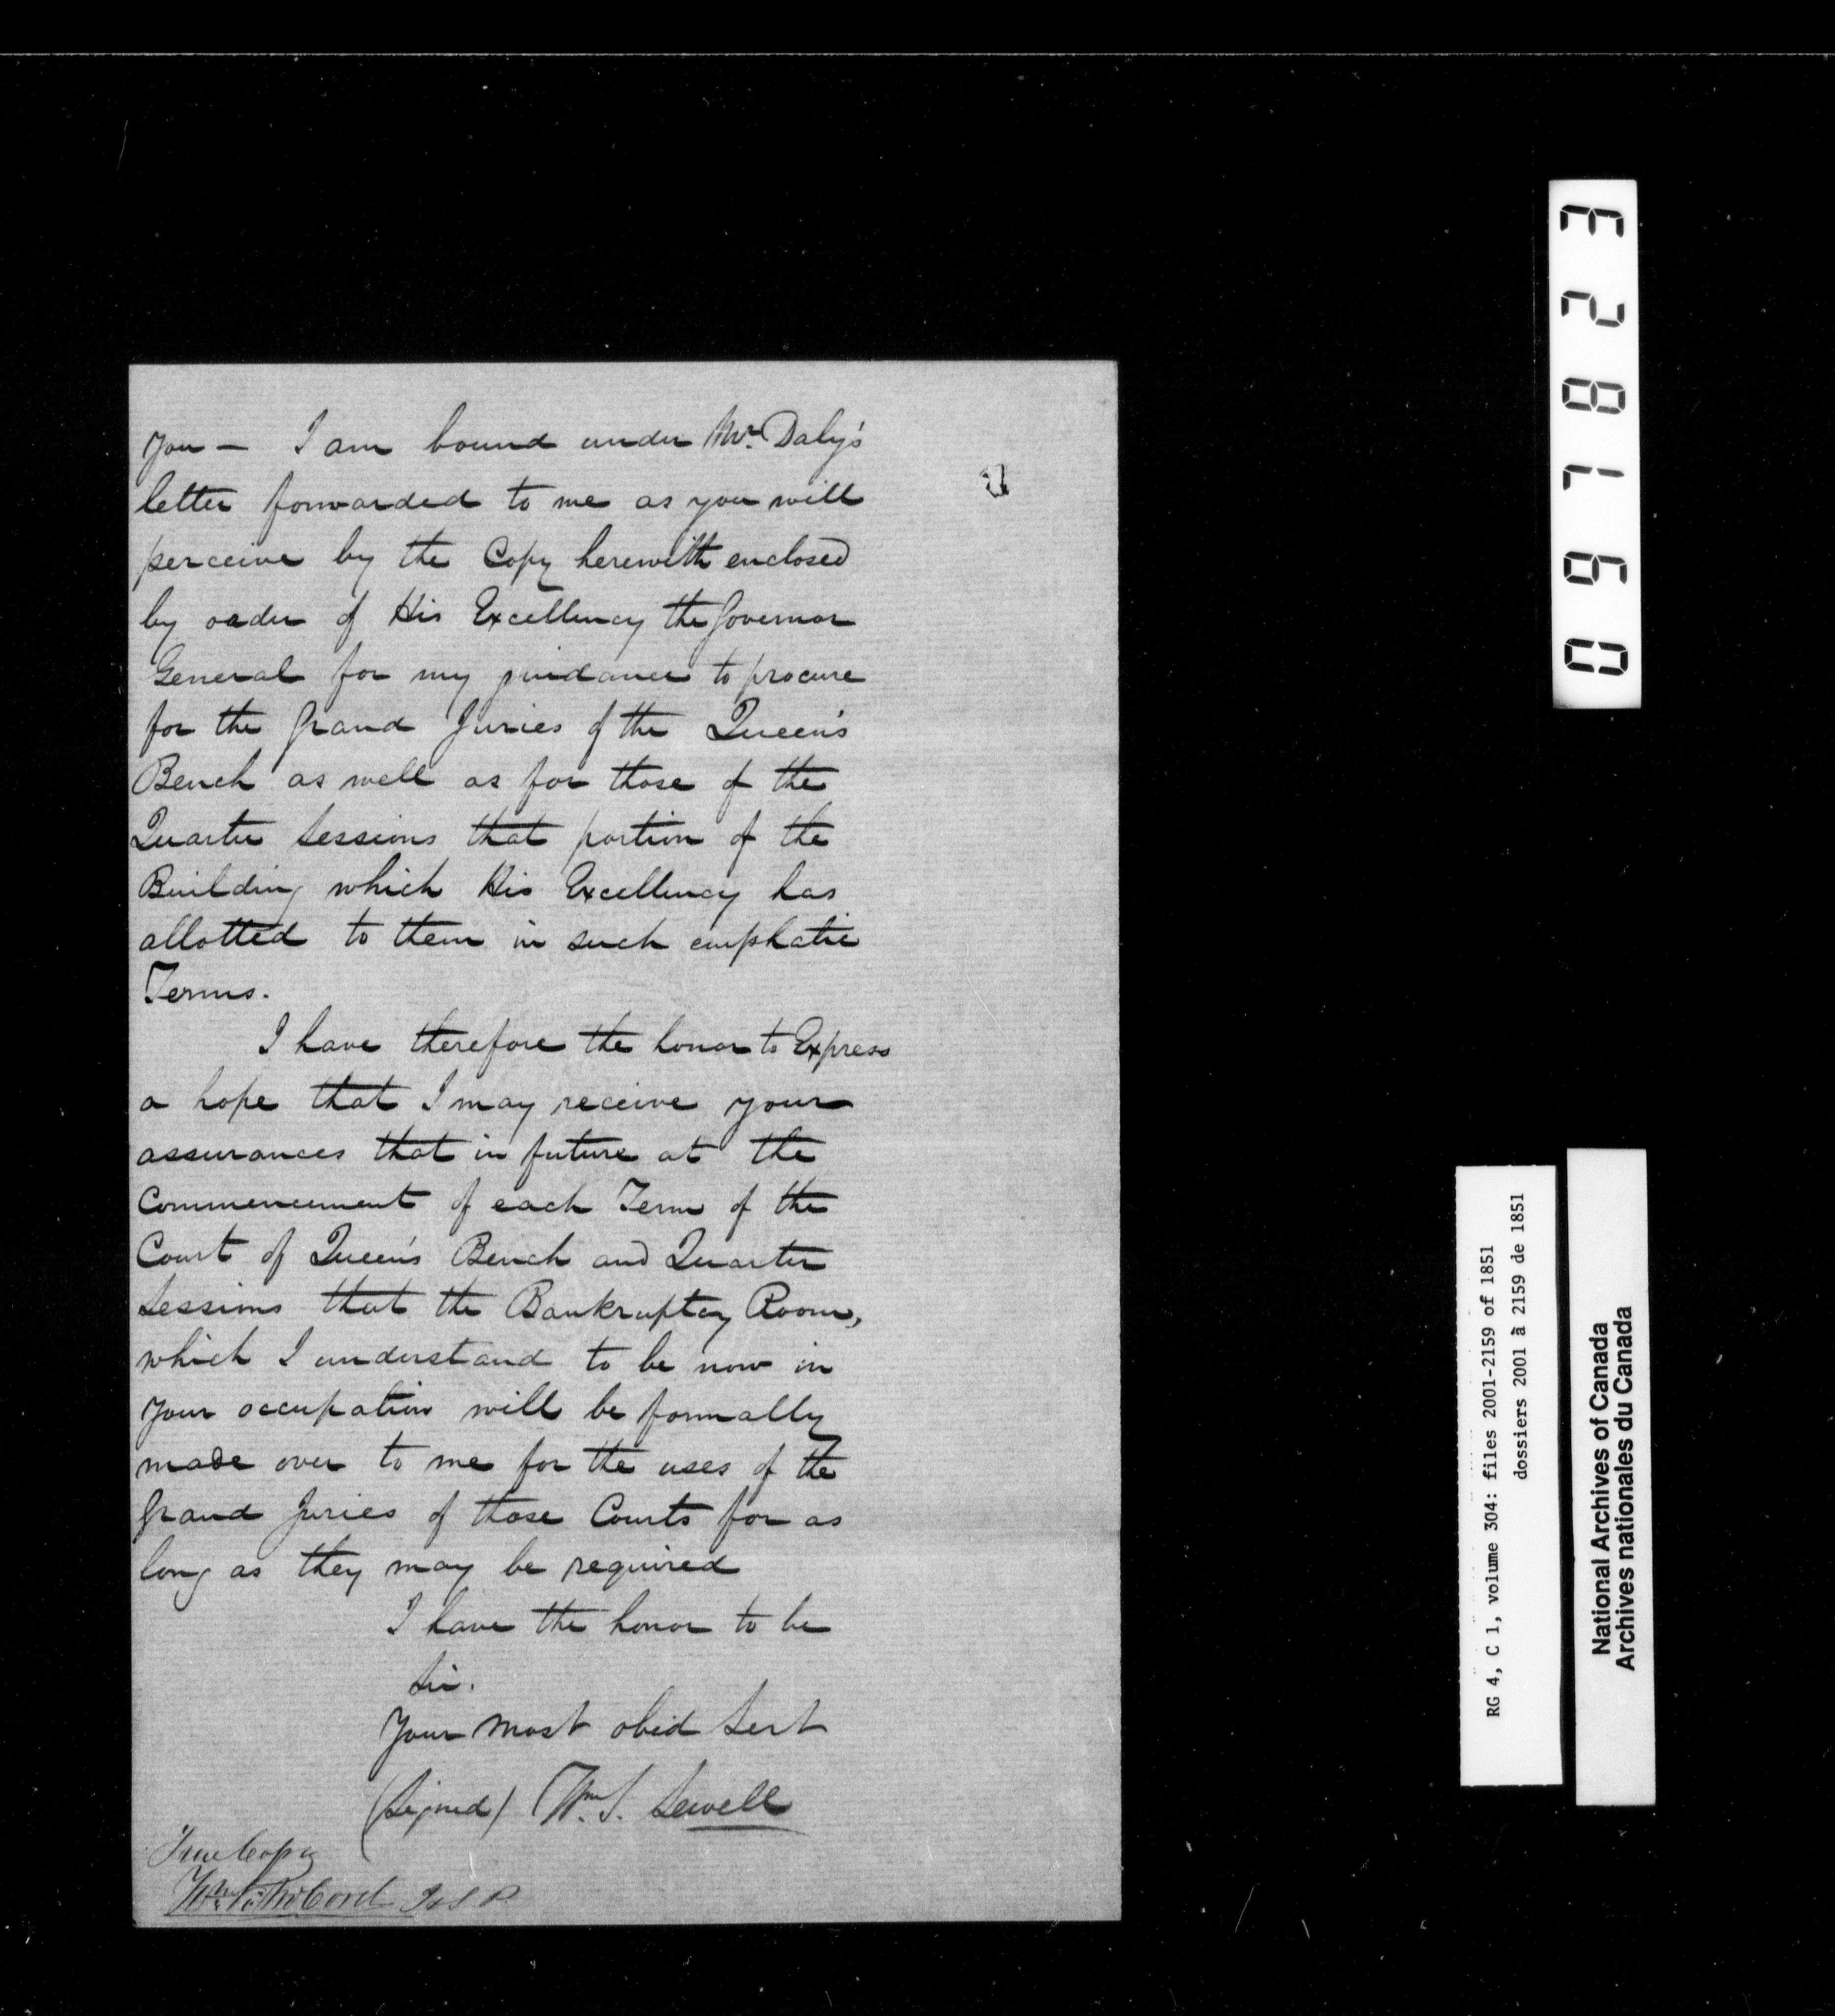 you — I am bound under Mr. Daly's
letter forwarded to me as you will
perceive by the Copy herewith enclosed
by order of His Excellency the Governor
General for my guidance to procure
for the Grand Juries of the Queen's
Bench as well as for those of the
Quarter Sessions that portion of the
Building which His Excellency has
allotted to them in such emphatic
Terms.
I have therefore the honor to Express
a hope that I may receive your
assurances that in future at the
Commencement of each Term of the
Court of Queen's Bench and Quarter
Sessions that the Bankruptcy Room,
which I understand to be now in
your occupation will be formally
made over to me for the uses of the
Grand Juries of those Courts for as
long as they may be required
I have the honor to be
Sir.
Your most obed Servt
(Signed) Wm. S. Sewell
True Copy
Wm McCord
032819
RG 4, C 1, volume 304: files 2001-2159 of 1851
dossiers 2001 à 2159 de 1851
National Archives of Canada
Archives nationales du Canada